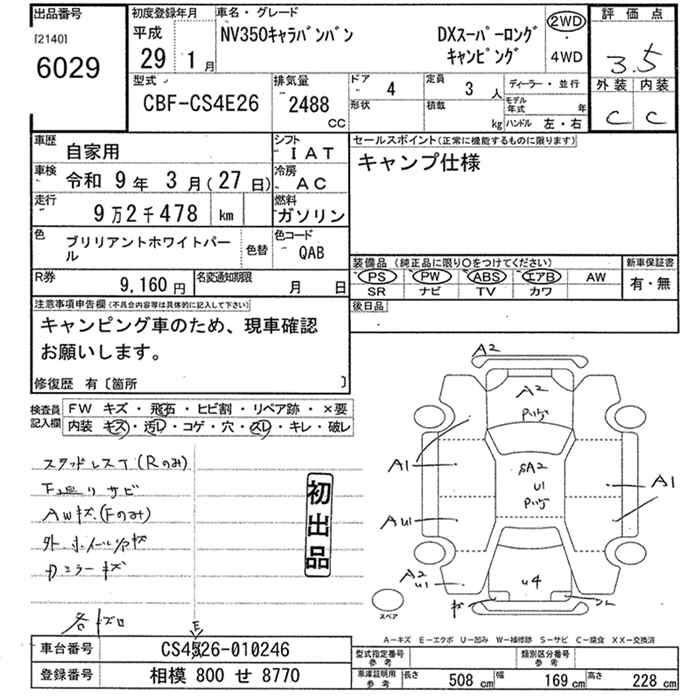 出品番号
[2140]
6029
初度登録年月
平成
29 1月
車名・グレード
NV350キャラバンバン DXスーパーロング
キャンピング
2WD
・
4WD
評価点
3.5
外装 内装
C C
型式
CBF-CS4E26
排気量
2488
CC
ドア
4
形状
定員
3 人
積載
kg
ディーラー・並行
モデル年式 年
ハンドル 左・右
車歴
自家用
シフト
IAT
車検
令和 9年 3月(27日)
冷房
AC
走行
9万2千478 km
燃料
ガソリン
色
ブリリアントホワイトパール
色替
色コード
QAB
R券
9,160円
名変通知期限
月 日
セールスポイント(正常に機能するものに限ります)
キャンプ仕様
装備品(純正品に限り○をつけてください)
PS PW ABS エアB AW
SR ナビ TV カワ
新車保証書
有・無
後日品
注意事項申告欄(不具合内容等は具体的に記入して下さい)
キャンピング車のため、現車確認
お願いします。
修復歴 有〔箇所 〕
検査員記入欄
FW キズ・飛石・ヒビ割・リペア跡・×要
内装 キズ・汚レ・コゲ・穴・スレ・キレ・破レ
スタッドレスT(Rのみ)
下廻りサビ
AWキズ(Fのみ)
ミラーキズ
初出品
A2
A2
A1
SA2
U1
A1
AU1
A2
U1
U4
スペア
A-キズ E-エクボ U-凹み W-補修跡 S-サビ C-腐食 XX-交換済
車台番号
CS4526-010246
E
登録番号
相模 800 せ 8770
型式指定番号
参考
類別区分番号
参考
車庫証明用
参考
長さ 508 cm 幅 169 cm 高さ 228 cm